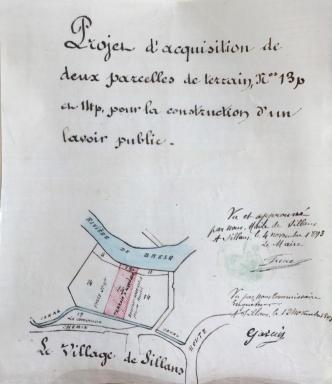 Projet d'acquisition de
deux parcelles de terrain, Nos 13p
et 14p, pour la construction d'un
lavoir public.
Vu et approuvé
par nous Maire de Sillans
A Sillans, le 4 novembre 1893
Le Maire
RIVIÈRE DE BRESQ
14
14
13
CANAL
CHEMIN
CANAL
ROUTE
Vu par nous Commissaire
enquêteur
Garcin
Le Village de Sillans